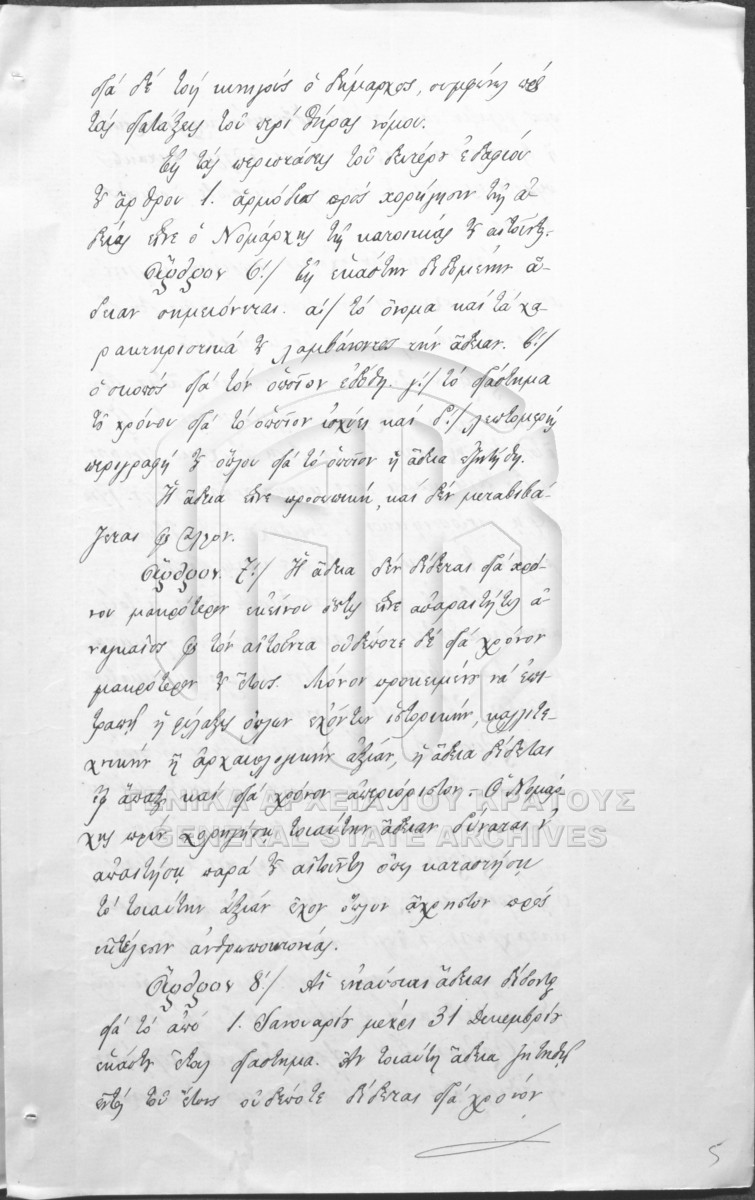 διὰ δὲ τοὺς κυνηγοὺς ὁ δήμαρχος, συμφώνως πρὸς
τὰς διατάξεις τοῦ περὶ θήρας νόμου.
Εἰς τὰς περιπτώσεις τοῦ δευτέρου ἐδαφίου
τοῦ ἄρθρου 1. ἁρμόδιος πρὸς χορήγησιν τῆς ἀ-
δείας εἶνε ὁ Νομάρχης τῆς κατοικίας τοῦ αἰτοῦντος.
Ἄρθρον 6!/ Εἰς ἑκάστην διδομένην ἄ-
δειαν σημειόνεται. α!/ τὸ ὄνομα καὶ τὰ χα-
ρακτηριστικὰ τοῦ λαμβάνοντος τὴν ἄδειαν. β!/
ὁ σκοπός διὰ τὸν ὁποῖον ἐδόθη. γ!/ τὸ διάστημα
τοῦ χρόνου διὰ τὸ ὁποῖον ἰσχύει καὶ δ!/ λεπτομερὴς
περιγραφὴ τοῦ ὅπλου διὰ τὸ ὁποῖον ἡ ἄδεια ἐζητήθη.
Ἡ ἄδεια εἶνε προσωπική, καὶ δὲν μεταβιβά-
ζεται εἰς ἄλλον.
Ἄρθρον. 7!/ Ἡ ἄδεια δὲν δίδεται διὰ χρό-
νον μακρότερον ἐκείνου ὅστις εἶνε ἀπαραιτήτως ἀ-
ναγκαῖος εἰς τὸν αἰτοῦντα οὐδέποτε δὲ διὰ χρόνον
μακρότερον τοῦ ἔτους. Μόνον προκειμένου νὰ ἐπι-
τραπῇ ἡ φύλαξις ὅπλων ἐχόντων ἱστορικήν, καλλιτε-
χνικὴν ἢ ἀρχαιολογικὴν ἀξίαν, ἡ ἄδεια δίδεται
εἰς ἅπαξ καὶ διὰ χρόνον ἀπεριόριστον. - Ὁ Νομάρ-
χης πρὶν χορηγήσῃ τοιαύτην ἄδειαν δύναται ν'
ἀπαιτήσῃ παρὰ τοῦ αἰτοῦντος ὅπως καταστήσῃ
τὸ τοιαύτην ἀξίαν ἔχον ὅπλον ἄχρηστον πρὸς
ἐκτέλεσιν ἀνθρωποκτονίας.
Ἄρθρον 8!/ Αἱ ἐνιαύσιαι ἄδειαι δίδονται
διὰ τὸ ἀπὸ 1. Ἰανουαρίου μέχρι 31 Δεκεμβρίου
ἑκάστου ἔτους διάστημα. Ἂν τοιαύτη ἄδεια ζητηθῇ
ἐντὸς τοῦ ἔτους οὐδέποτε δίδεται διὰ χρόνον
5
ΓΕΝΙΚΑ ΑΡΧΕΙΑ ΤΟΥ ΚΡΑΤΟΥΣ
GENERAL STATE ARCHIVES